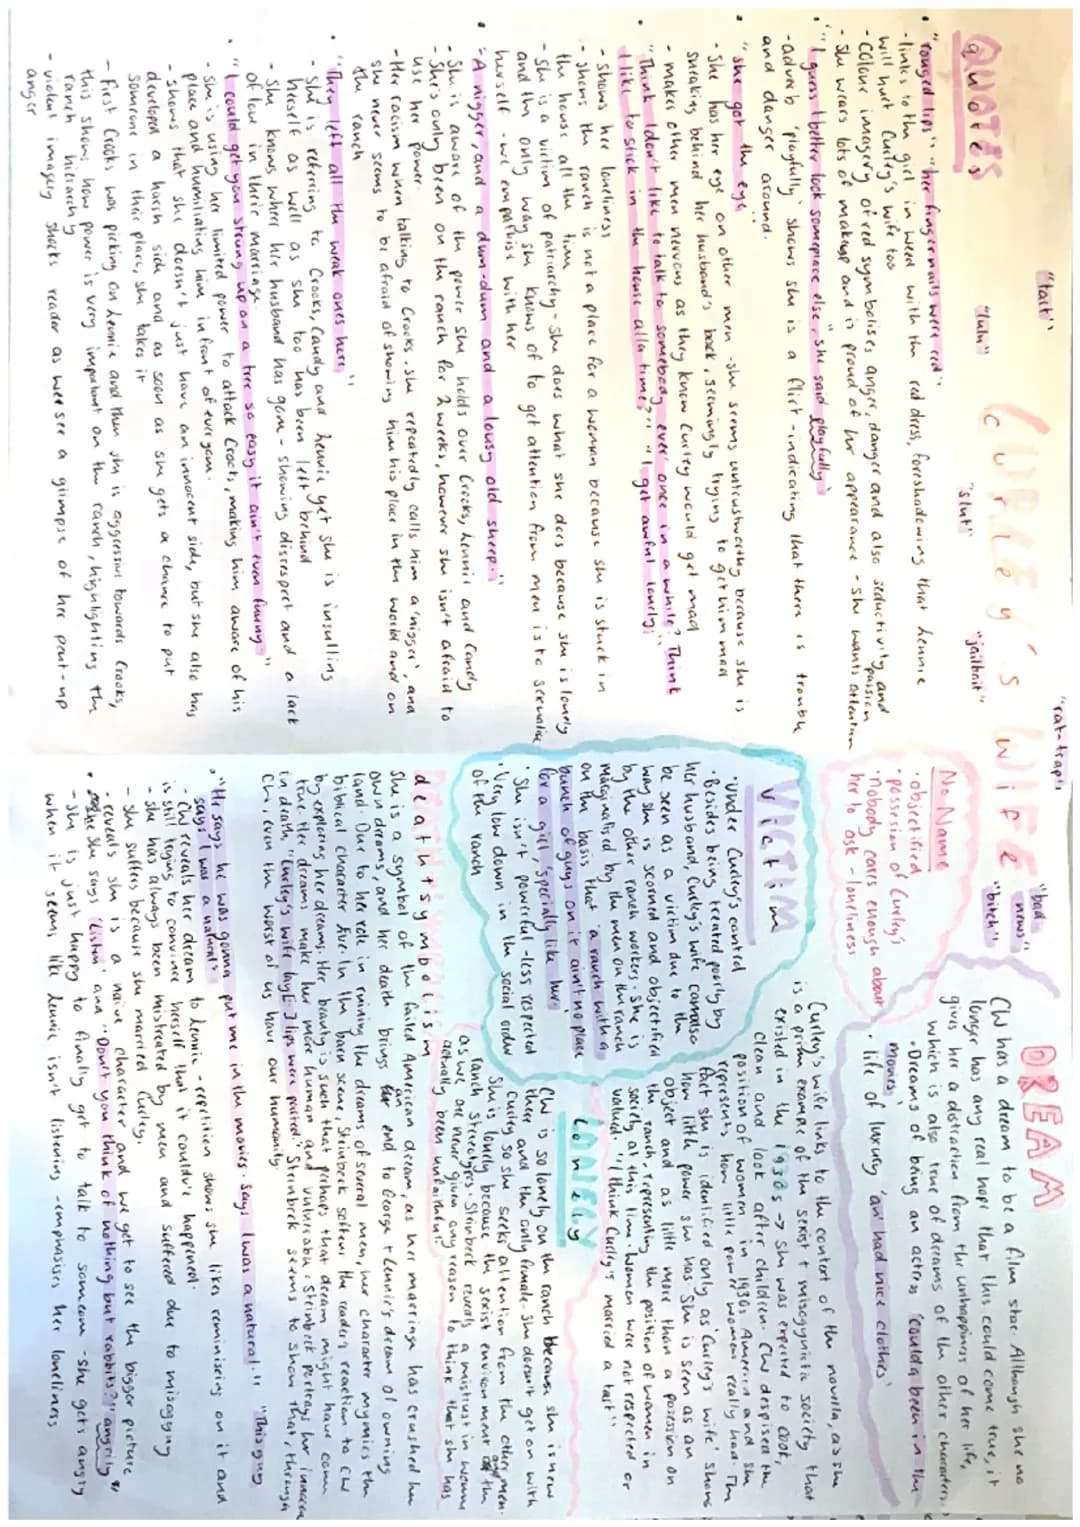 CURLEY'S WIFE
"tart"
"lulu"
"slut"
"jailbait"
"rat-trap"
"bad news"
"bitch"
QUOTES
• "rouged lips" "her fingernails were red"
- links to the girl in weed with the red dress, foreshadowing that Lennie
will hurt Curley's wife too
- colour imagery of red symbolises anger, danger and also seductivity and passion
- she wears lots of makeup and is proud of her appearance - she wants attention
• "I guess I better look someplace else," she said playfully"
- adverb 'playfully' shows she is a flirt - indicating that there is trouble
and danger around.
• "she got the eye"
- she has her eye on other men - she seems untrustworthy because she is
sneaking behind her husband's back, seemingly trying to get him mad
- makes other men nervous as they know Curley would get mad
• "Think I don't like to talk to somebody ever' once in a while? Think
I like to stick in the house alla time?" "I get awful lonely"
- shows her loneliness
- shows the ranch is not a place for a woman because she is stuck in
the house all the time
- she is a victim of patriarchy - she does what she does because she is lonely
and the only way she knows of to get attention from men is to sexualise
herself - we empathise with her
• "A nigger, and a dum-dum and a lousy old sheep"
- She is aware of the power she holds over Crooks, Lennie and Candy
- She's only been on the ranch for 2 weeks, however she isn't afraid to
use her power.
- Her racism when talking to Crooks. she repeatedly calls him a 'nigger', and
she never seems to be afraid of showing him his place in the world and on
the ranch
• "They left all the weak ones here"
- she is referring to Crooks, Candy and Lennie yet she is insulting
herself as well as she too has been left behind
- She knows where her husband has gone - showing disrespect and a lack
of love in their marriage.
• "I could get you strung up on a tree so easy it ain't even funny"
- she is using her limited power to attack Crooks, making him aware of his
place and humiliating him in front of everyone.
- shows that she doesn't just have an innocent side, but she also has
developed a harsh side and as soon as she gets a chance to put
someone in their place, she takes it
- First Crooks was picking on Lennie and then she is aggressive towards Crooks,
this shows how power is very important on the ranch, highlighting the
ranch hierarchy
- violent imagery shocks reader as we see a glimpse of her pent-up
anger
No Name
• objectified
• possesion of Curley's
• nobody cares enough about
her to ask - loneliness
DREAM
CW has a dream to be a film star. Although she no
longer has any real hope that this could come true, it
gives her a distraction from the unhappiness of her life,
which is also true of dreams of the other characters.
• Dreams of being an actress 'coulda been in the
movies'
• life of luxury 'an' had nice clothes'
Victim
• Under Curley's control
• Besides being treated poorly by
her husband, Curley's wife can also
be seen as a victim due to the
way she is scorned and objectified
by the other ranch workers. She is
marginalised by the men on the ranch
on the basis that 'a ranch with a
bunch of guys on it ain't no place
for a girl, specially like her'
• She isn't powerful - less respected
• Very low down in the social order
of the ranch
Curley's wife links to the context of the novella, as she
is a prime example of the sexist + misogynistic society that
existed in the 1930s → she was expected to cook,
clean and look after children. CW despised the
position of women in 1930s America and she
represents how little power women really had. The
fact she is identified only as 'Curley's wife' shows
how little power she has. She is seen as an
object and as little more than a possession on
the ranch, representing the position of women in
society at this time. Women were not respected or
valued. "I think Curley's married a tart"
LONELY
CW is so lonely on the ranch because she is new
there and the only female. She doesn't get on with
Curley so she seeks attention from the other men.
She is lonely because the sexist environment and of the
ranch stereotypes. Steinbeck reveals a mistrust in women
as we are never given any reason to think that she has
actually been unfaithful.
death+symbolism
She is a symbol of the failed American dream, as her marriage has crushed her
own dreams, and her death brings an end to George + Lennie's dream of owning
land. Due to her role in ruining the dreams of several men, her character mymics the
biblical character Eve. In the barn scene, Steinbeck softens the readers reaction to CW
by exploring her dreams. Her beauty is such that perhaps that dream might have come
true. Her dreams make her more human and vulnerable. Steinbeck portrays her innocence
in death, "Curley's wife lay [...] lips were parted." Steinbeck seems to show that, through
CW, even the worst of us have our humanity.
• "He says he was gonna put me in the movies. Says I was a natural." "This guy
says I was a natural"
- CW reveals her dream to Lennie - repetition shows she likes reminising on it and
is still trying to convince herself that it could've happened.
- she has always been mistreated by men and suffered due to misogyny
- she suffers because she married Curley.
- reveals she is a naive character and we get to see the bigger picture
• she says 'Listen' and "Don't you think of nothing but rabbits?" angrily"
- she is just happy to finally get to talk to someone - she gets angry
when it seems like Lennie isn't listening - emphasises her loneliness